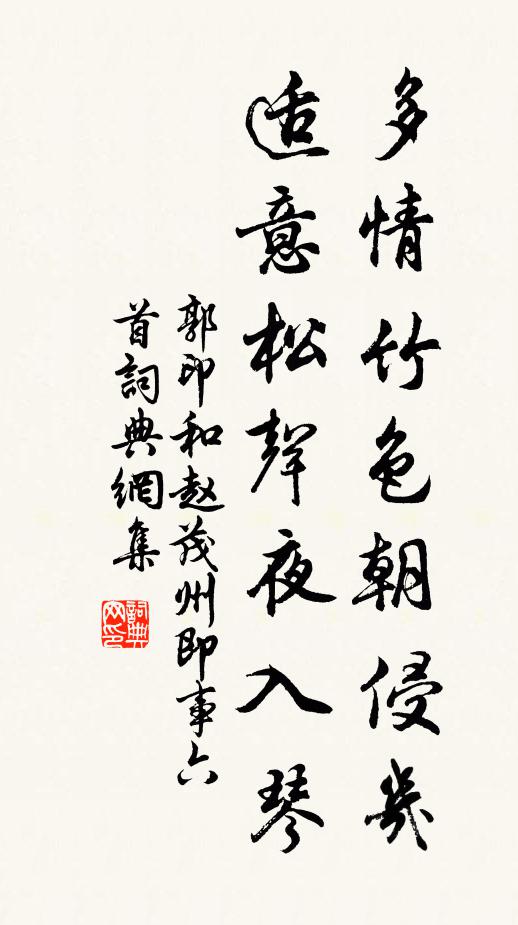 多情竹色朝侵几
适意松聲夜入琴
郭印和赵茂州即事六
首詞典網集
詞典网印